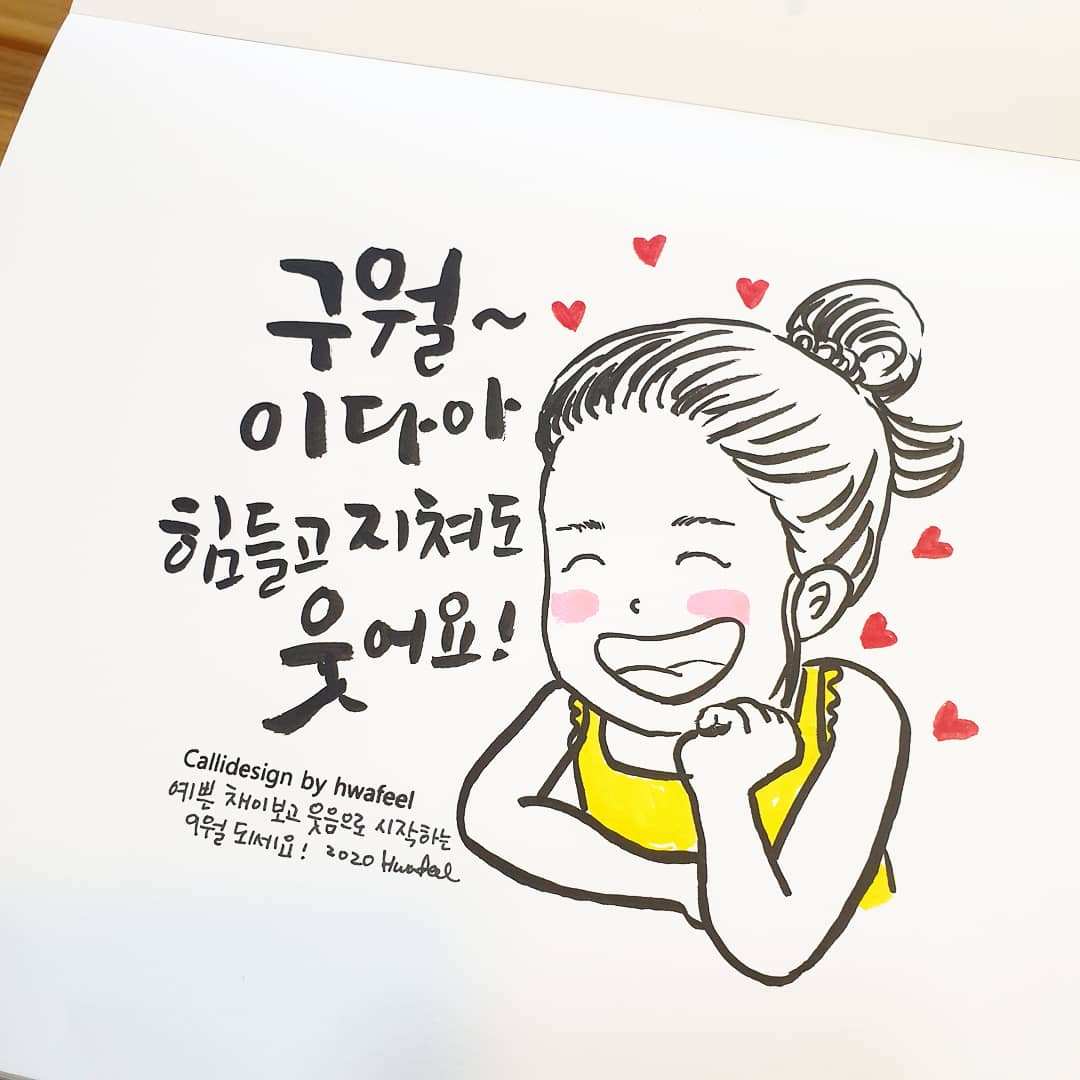 구월~
이다아
힘들고 지쳐도
웃어요!
Callidesign by hwafeel
예쁜 채이보고 웃음으로 시작하는
9월 되세요! 2020 Hwafeel